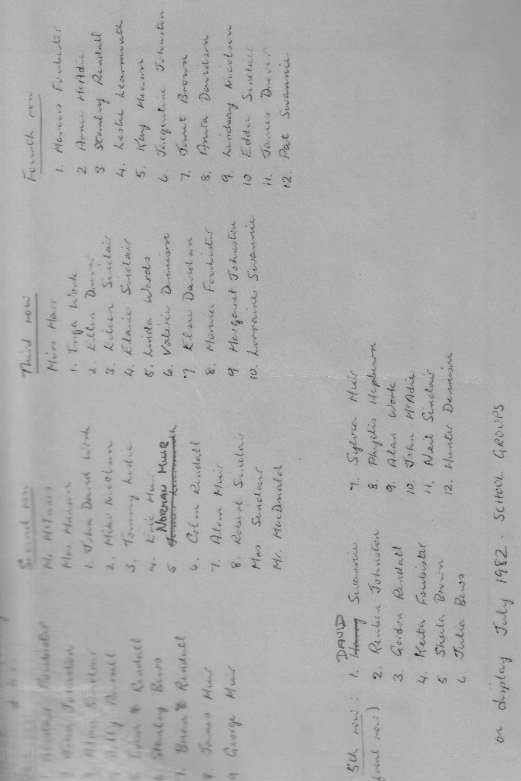 Second row
Mr McInnes
Mrs Manson
1. John David Work
2. Mike Nicolson
3. Tommy Leslie
4. Eric Muir
NORMAN MUIR
5
6. Colin Rendall
7. Alan Muir
8. Robert Sinclair
Mrs Sinclair
Mr. MacDonald
Third row
Miss Marr
1. Inga Work
2. Ellen Drever
3. Eileen Sinclair
4. Elaine Sinclair
5. Linda Woods
6. Valerie Dennison
7. Elsie Davidson
8. Monica Foubister
9. Margaret Johnston
10. Lorraine Swannie
Fourth row
1. Marcus Foubister
2. Anne McAdie
3 Stanley Rendall
4. Leslie Learmonth
5. Kay Mason
6. Jacqueline Johnston
7. Janet Brown
8. Anita Davidson
9. Lindsay Nicolson
10 Eddie Sinclair
11. James Drever
12 Pat Swannie
Foubister
Johnston
Sinclair
Rendall
5 Rendall
6 Stanley Bews
7. Brian Rendall
8. James Muir
9 George Muir
5th row:
front row)
DAVID
1. Swannie
2. Reuben Johnston
3 Gordon Rendall
4. Keith Foubister
5 Sheila Brown
6. Julia Bews
7. Sylvia Muir
8 Phyllis Hepburn
9. Alan Work
10. John McAdie
11. Neil Sinclair
12. Hunter Dennison
on display July 1982. SCHOOL GROUPS